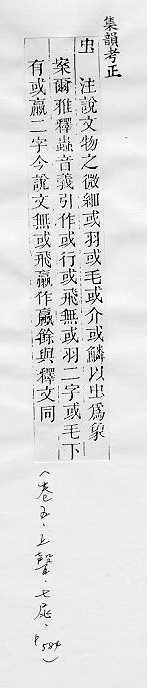 集韻考正
虫 注說文物之微細或羽或毛或介或鱗以虫爲象
案爾雅釋蟲音義引作或行或飛無或羽二字或毛下
有或蠃二字今說文無或飛蠃作臝餘與釋文同
(卷五.上聲.七尾.P584)